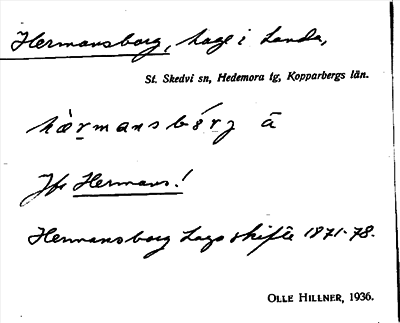 Hermansborg, hage i Landa,
St. Skedvi sn, Hedemora tg, Kopparbergs län.
hæ̀rmansbórj ā
Jfr Hermans!
Hermansborg Laga skifte 1871-78.
OLLE HILLNER, 1936.